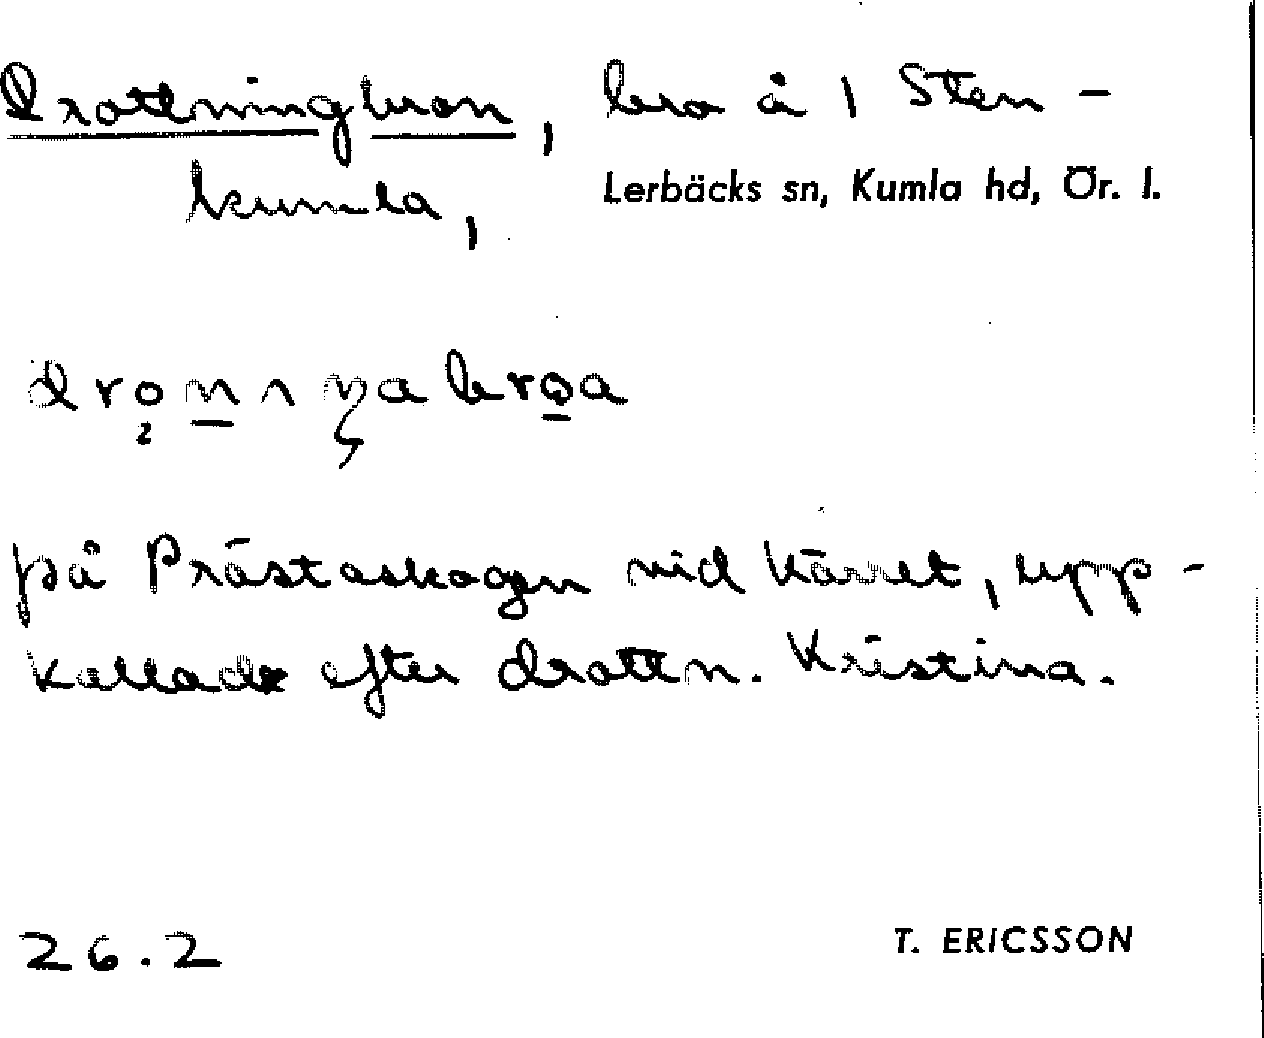 Drottningbron, bro å 1 Sten-
kumla,
Lerbäcks sn, Kumla hd, Ör. l.
på Prästaskogen vid Kärret, upp-
kallade efter drottn. Kristina.
26.2
T. ERICSSON